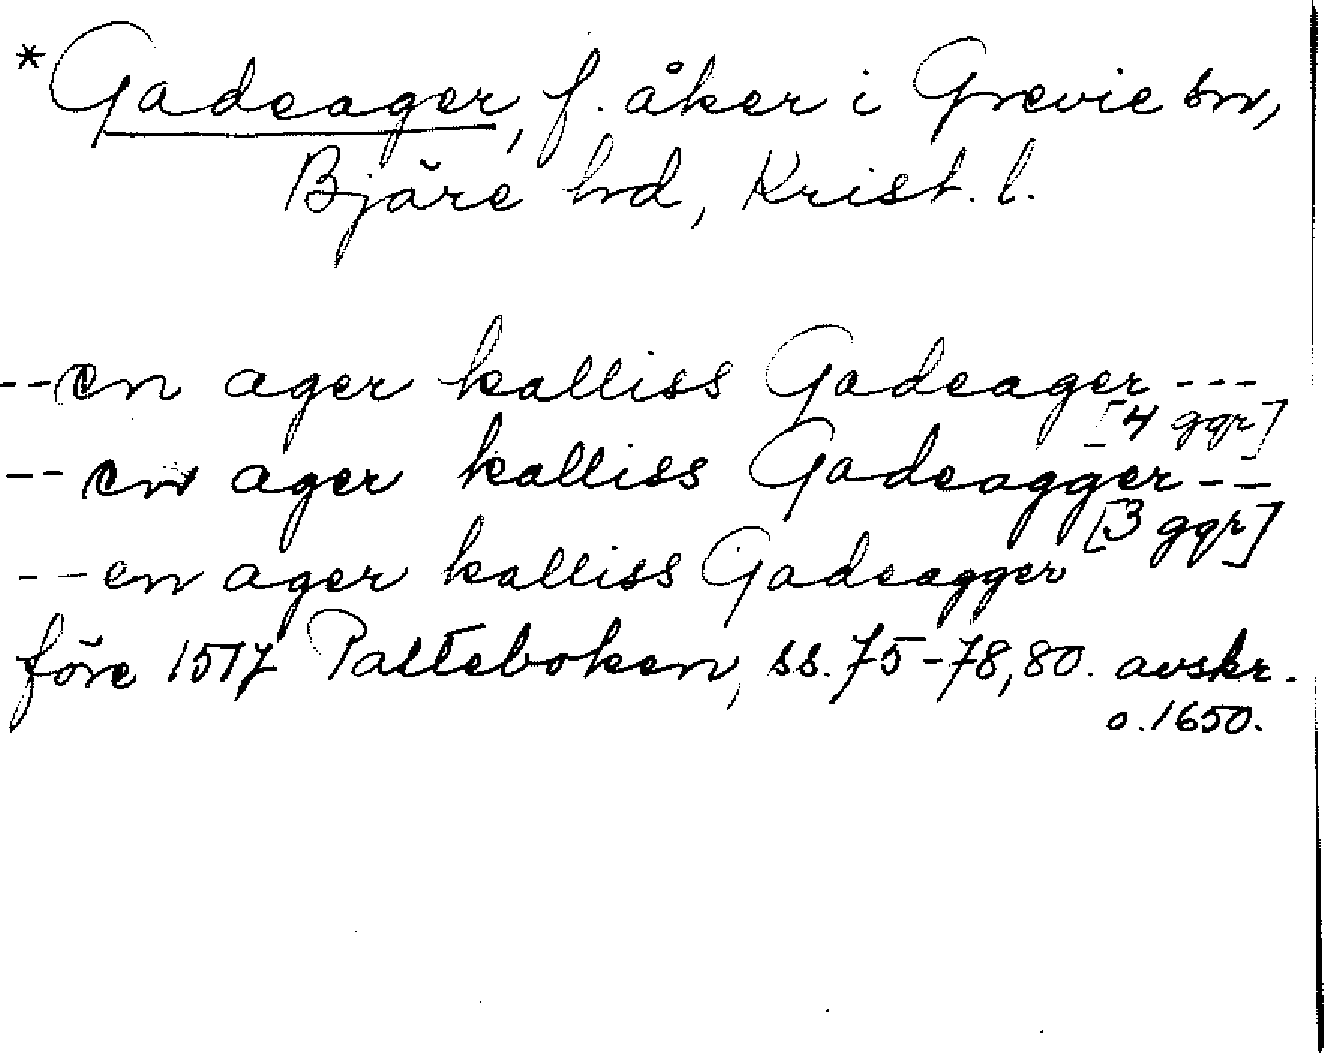 *Gadeager, f. åker i Grevie sn,
Bjäre hd, Krist. l.
--en ager kalliss Gadeager---
[4 ggr]
--en ager kalliss Gadeagger--
[3 ggr]
--en ager kalliss Gadeagger
före 1517 Palteboken, ss. 75-78, 80. avskr.
o. 1650.